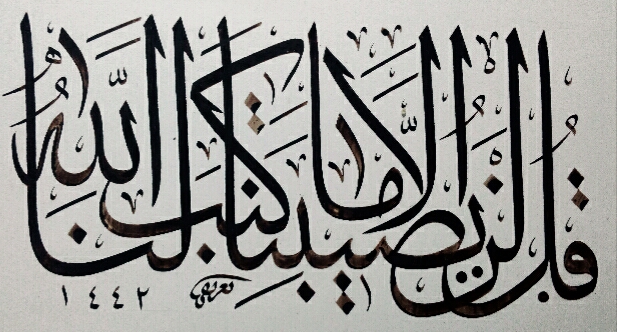 قل لن يصيبنا إلا ما كتب الله لنا
١٤٤٢